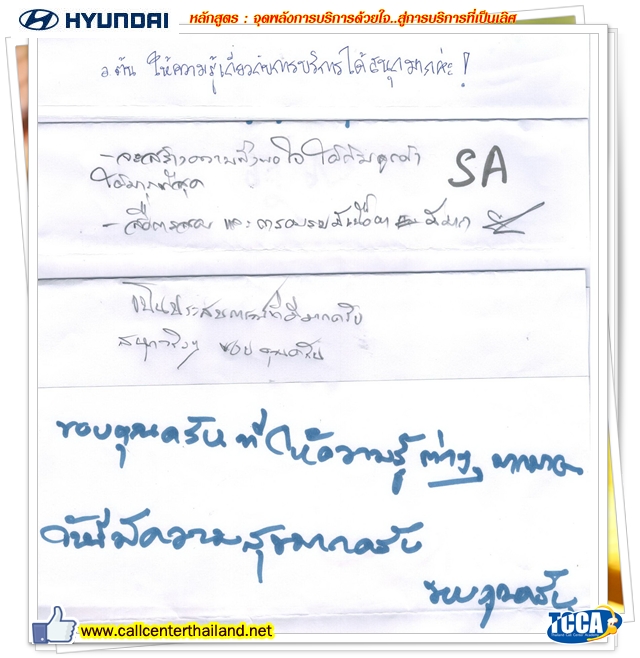 HYUNDAI
หลักสูตร : จุดพลังการบริการด้วยใจ..สู่การบริการที่เป็นเลิศ
อ.ต้น ให้ความรู้เกี่ยวกับการบริการได้สนุกมากค่ะ!
- จะสร้างความพึงพอใจ ให้กับลูกค้า
ให้มากที่สุด
SA
- สื่อการสอน และ การอบรมมีเนื้อหา ดีมาก
เป็นประสบการณ์ที่ดีมากครับ
สนุกจริงๆ ขอบคุณครับ
ขอบคุณครับ ที่ให้ความรู้ ต่างๆ มากมาย
วันนี้มีความสุขมากครับ
ขอบคุณครับ
www.callcenterthailand.net
TCCA